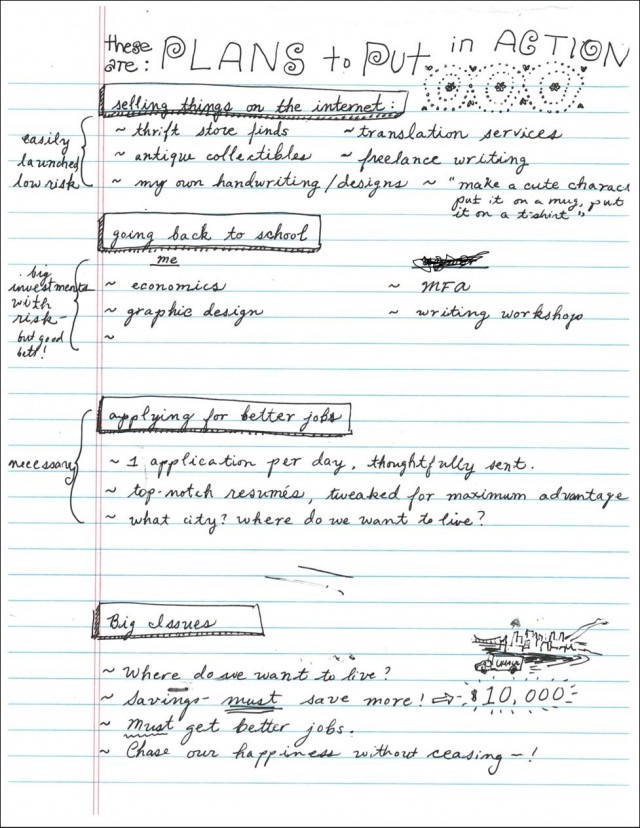 these are: PLANS to Put in ACTION
selling things on the internet:
easily launched low risk
~ thrift store finds ~ translation services
~ antique collectibles ~ freelance writing
~ my own handwriting/designs ~ "make a cute charac
put it on a mug, put
it on a t-shirt"
going back to school
me
big investments with risk - but good bets!
~ economics ~ MFA
~ graphic design ~ writing workshop
~
applying for better jobs
necessary
~ 1 application per day, thoughtfully sent.
~ top-notch resumés, tweaked for maximum advantage
~ what city? where do we want to live?
Big Issues
~ Where do we want to live?
~ Savings - must save more! ⇒ $10,000
~ Must get better jobs.
~ Chase our happiness without ceasing -!